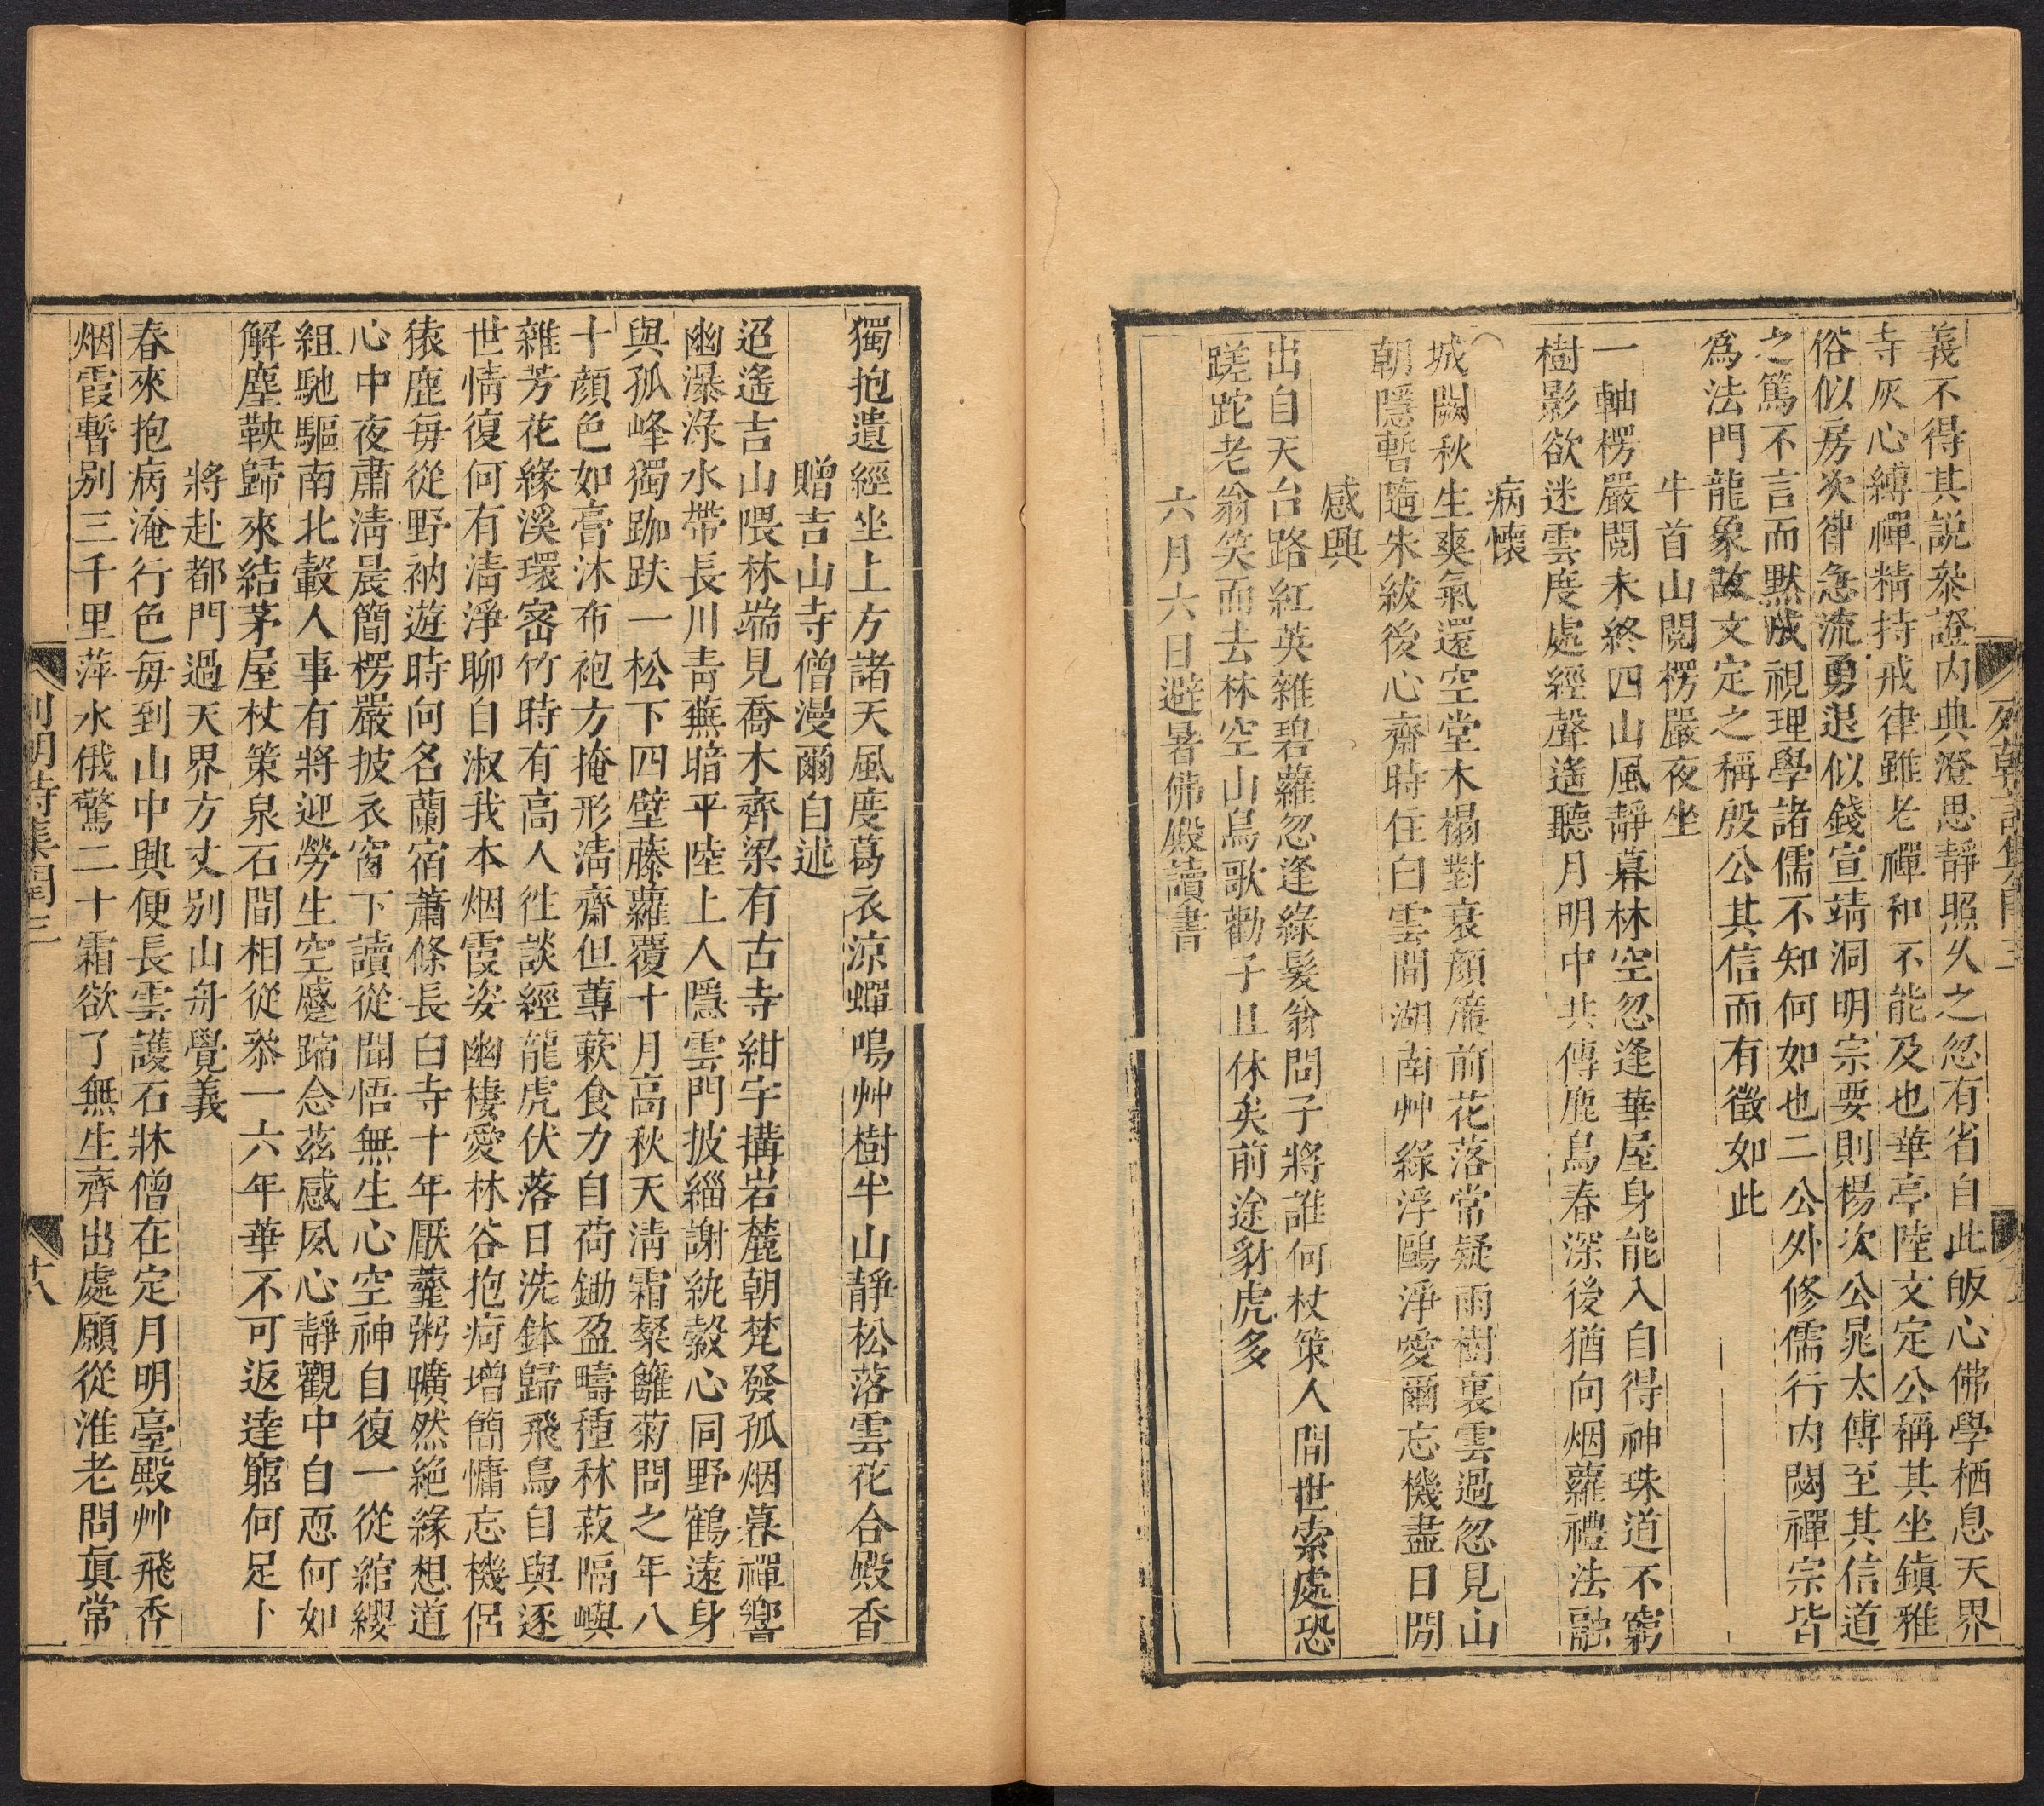 義不得其説叅證内典澄思靜照久之忽有省自此皈心佛學栖息天界
寺灰心縛禪精持戒律雖老禪和不能及也華亭陸文定公稱其坐鎮雅
俗似房次律急流勇退似錢宣靖洞明宗要則楊次公晁太傅至其信道
之篤不言而默成視理學諸儒不知何如也二公外修儒行内閟禪宗皆
爲法門龍象故文定之稱殷公其信而有徵如此
牛首山閱楞嚴夜坐
一軸楞嚴閱未終四山風靜暮林空忽逢華屋身能入自得神珠道不窮
樹影欲迷雲度處經聲遙聽月明中共傳鹿鳥春深後猶向烟蘿禮法融
病懷
城闕秋生爽氣還空堂木榻對衰顔簾前花落常疑雨樹裏雲過忽見山
朝隱暫隨朱紱後心齋時住白雲間湖南艸綠浮鷗淨愛爾忘機盡日閒
感興
出自天台路紅英雜碧蘿忽逢綠髮翁問子將誰何杖策人間世索處恐
蹉跎老翁笑而去林空山鳥歌勸子且休矣前途豺虎多
六月六日避暑佛殿讀書
列朝詩集閏三
獨抱遺經坐上方諸天風度葛衣涼蟬鳴艸樹半山靜松落雲花合殿香
贈吉山寺僧漫爾自述
迢遙吉山隈林端見喬木齊梁有古寺紺宇搆岩麓朝梵發孤烟暮禪響
幽瀑淥水帶長川青蕪暗平陸上人隱雲門披緇謝紈縠心同野鶴遠身
與孤峰獨跏趺一松下四壁藤蘿覆十月高秋天清霜粲籬菊問之年八
十顔色如膏沐布袍方掩形清齋但蓴蔌食力自荷鋤盈疇種秫菽隔嶼
雜芳花緣溪環密竹時有高人徃談經龍虎伏落日洗鉢歸飛鳥自與逐
世情復何有清淨聊自淑我本烟霞姿幽棲愛林谷抱疴增簡慵忘機侶
猿鹿毎從野衲遊時向名蘭宿蕭條長白寺十年厭虀粥曠然絶緣想道
心中夜肅清晨簡楞嚴披衣窗下讀從聞悟無生心空神自復一從綰纓
組馳驅南北轂人事有將迎勞生空蹙踖念茲感夙心靜觀中自恧何如
解塵鞅歸來結茅屋杖策泉石間相從叅一六年華不可返達竆何足卜
將赴都門過天界方丈别山舟覺義
春來抱病淹行色毎到山中興便長雲護石牀僧在定月明臺殿艸飛香
烟霞暫别三千里萍水俄驚二十霜欲了無生齊出處願從淮老問眞常
列朝詩集閏三
廿八